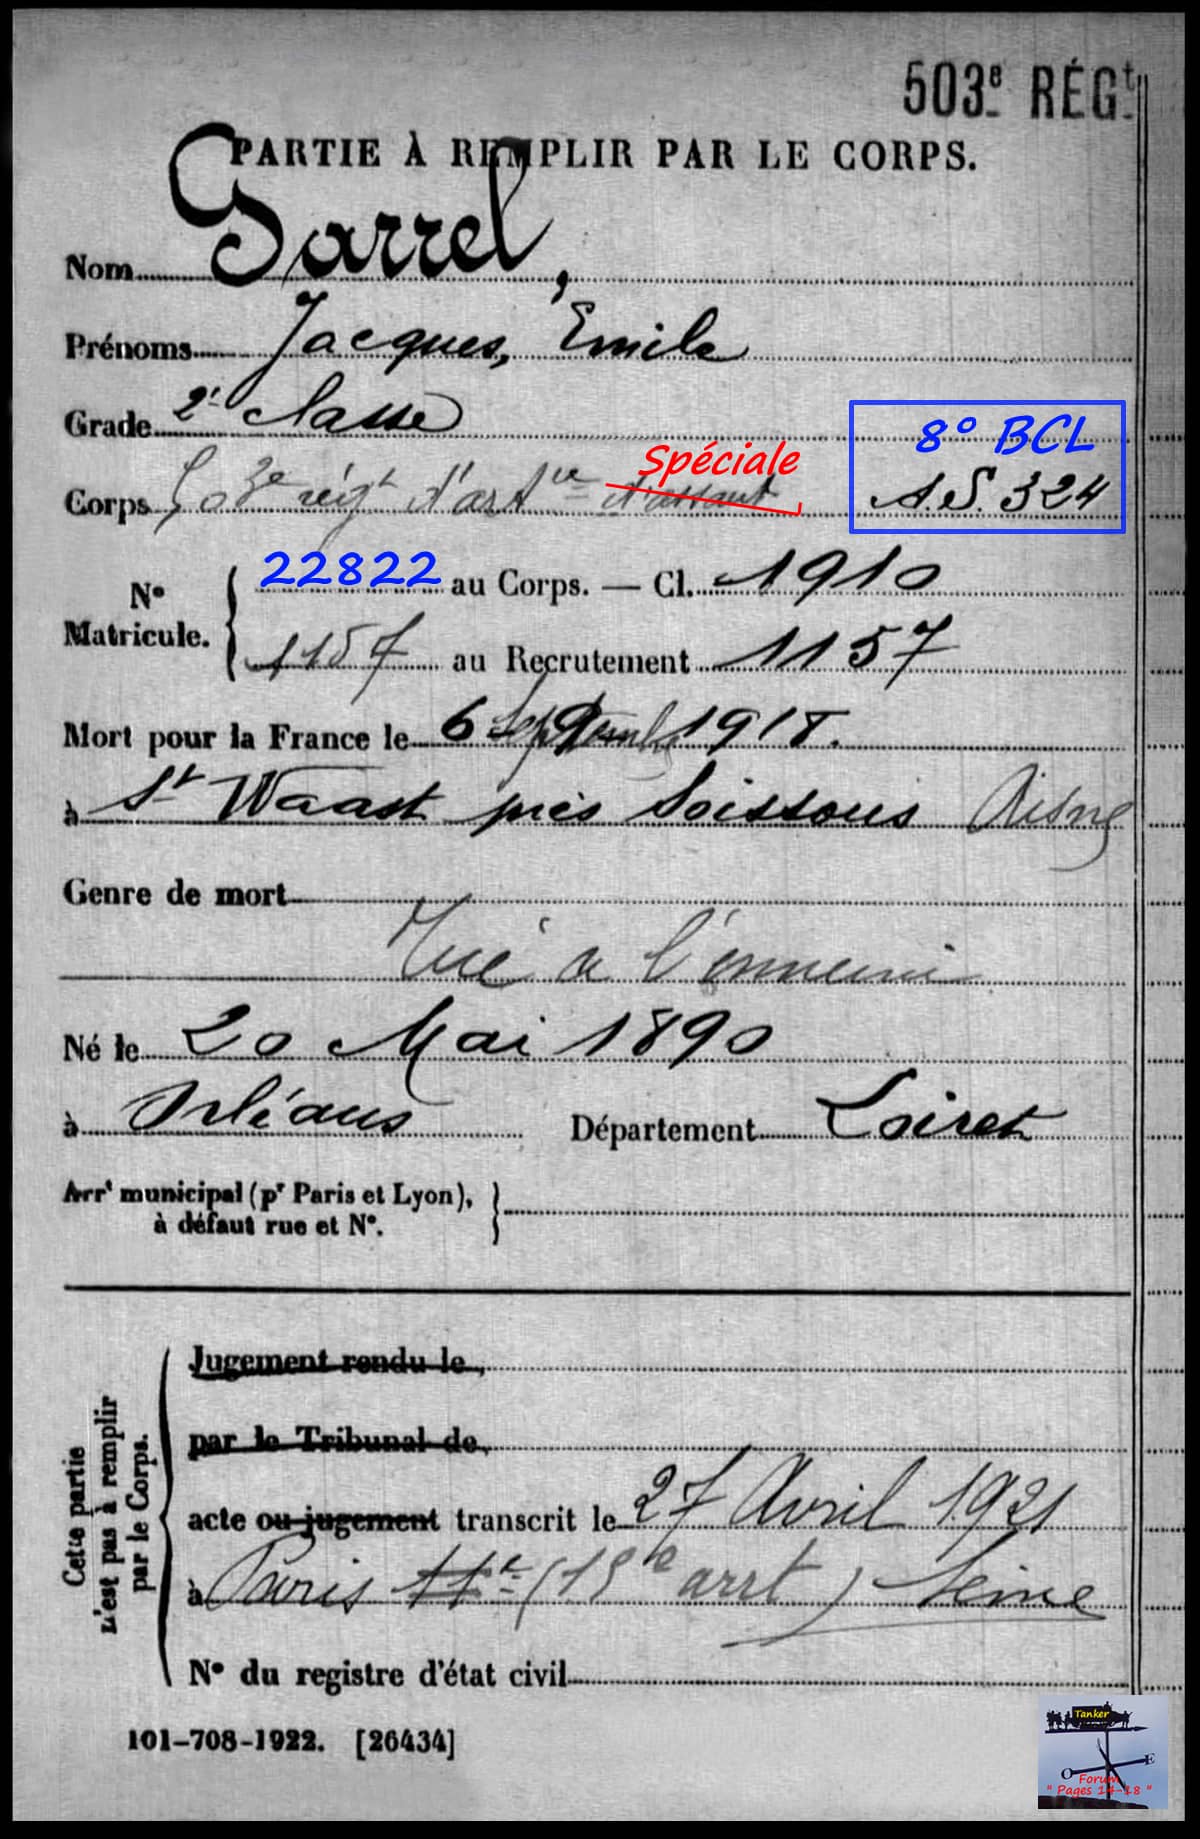 503ᵉ RÉGᵗ
PARTIE À REMPLIR PAR LE CORPS.
Nom Garrel,
Prénoms Jacques, Emile
Grade 2ᵉ classe
Spéciale
8° BCL
Corps 503ᵉ régᵗ d'artⁱᵉ d'assaut A.S. 324
Nº Matricule. { 22822 au Corps. — Cl. 1910
1157 au Recrutement 1157
Mort pour la France le 6 Septembre 1918.
à Sᵗ Waast près Soissons Aisne
Genre de mort
Tué à l'ennemi
Né le 20 Mai 1890
à Orléans Département Loiret
Arrᵗ municipal (pʳ Paris et Lyon), }
à défaut rue et Nº.
Cette partie
n'est pas à remplir
par le Corps.
Jugement rendu le,
par le Tribunal de,
acte ou jugement transcrit le 27 Avril 1921
à Paris 11ᵉ (15ᵉ arrt) Seine
Nº du registre d'état civil
101-708-1922. [26434]
Tanker
O E
Forum
" Pages 14-18 "